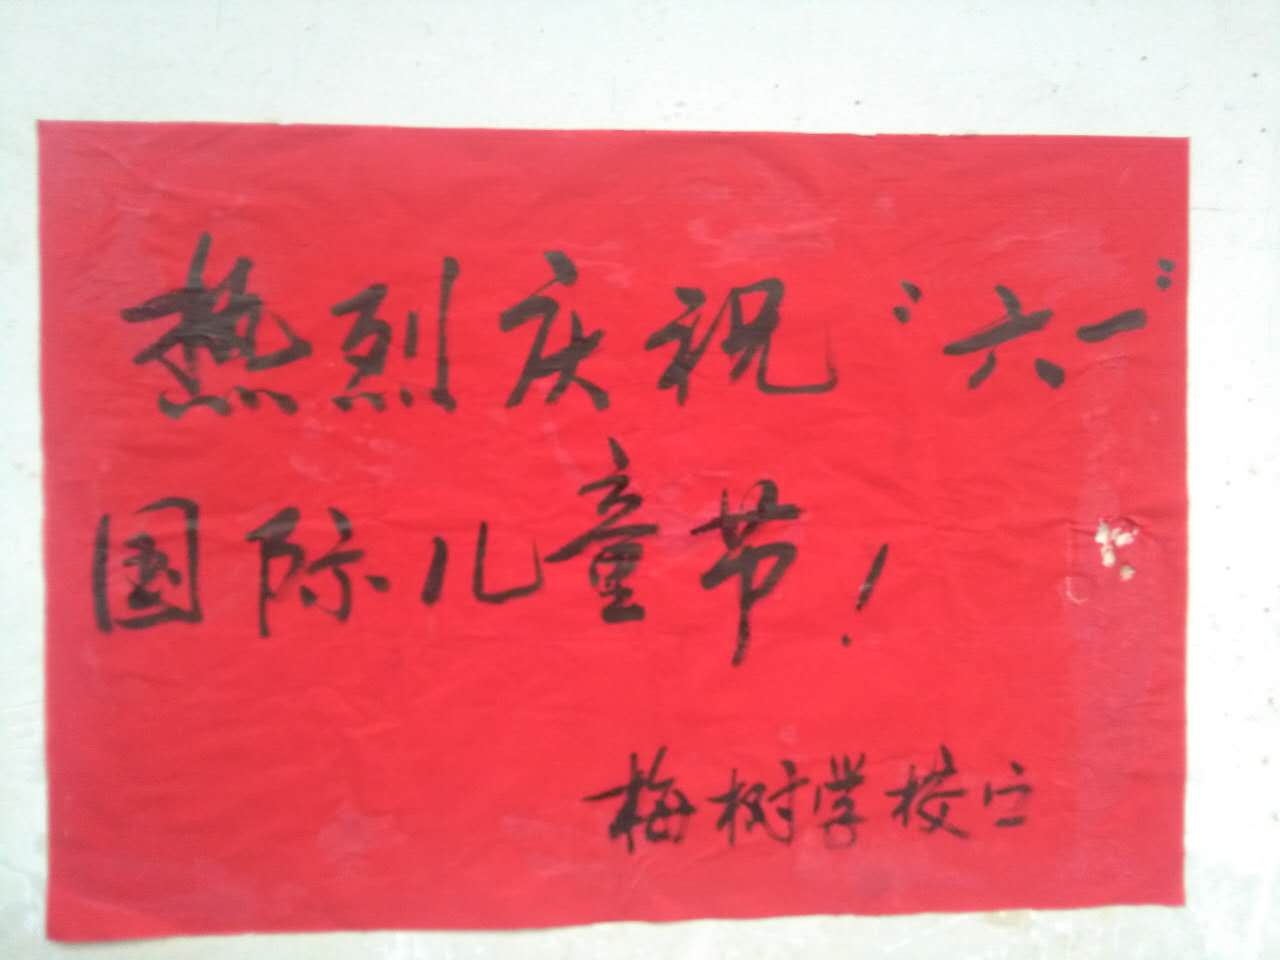 热烈庆祝“六一”
国际儿童节！
梅树学校宣